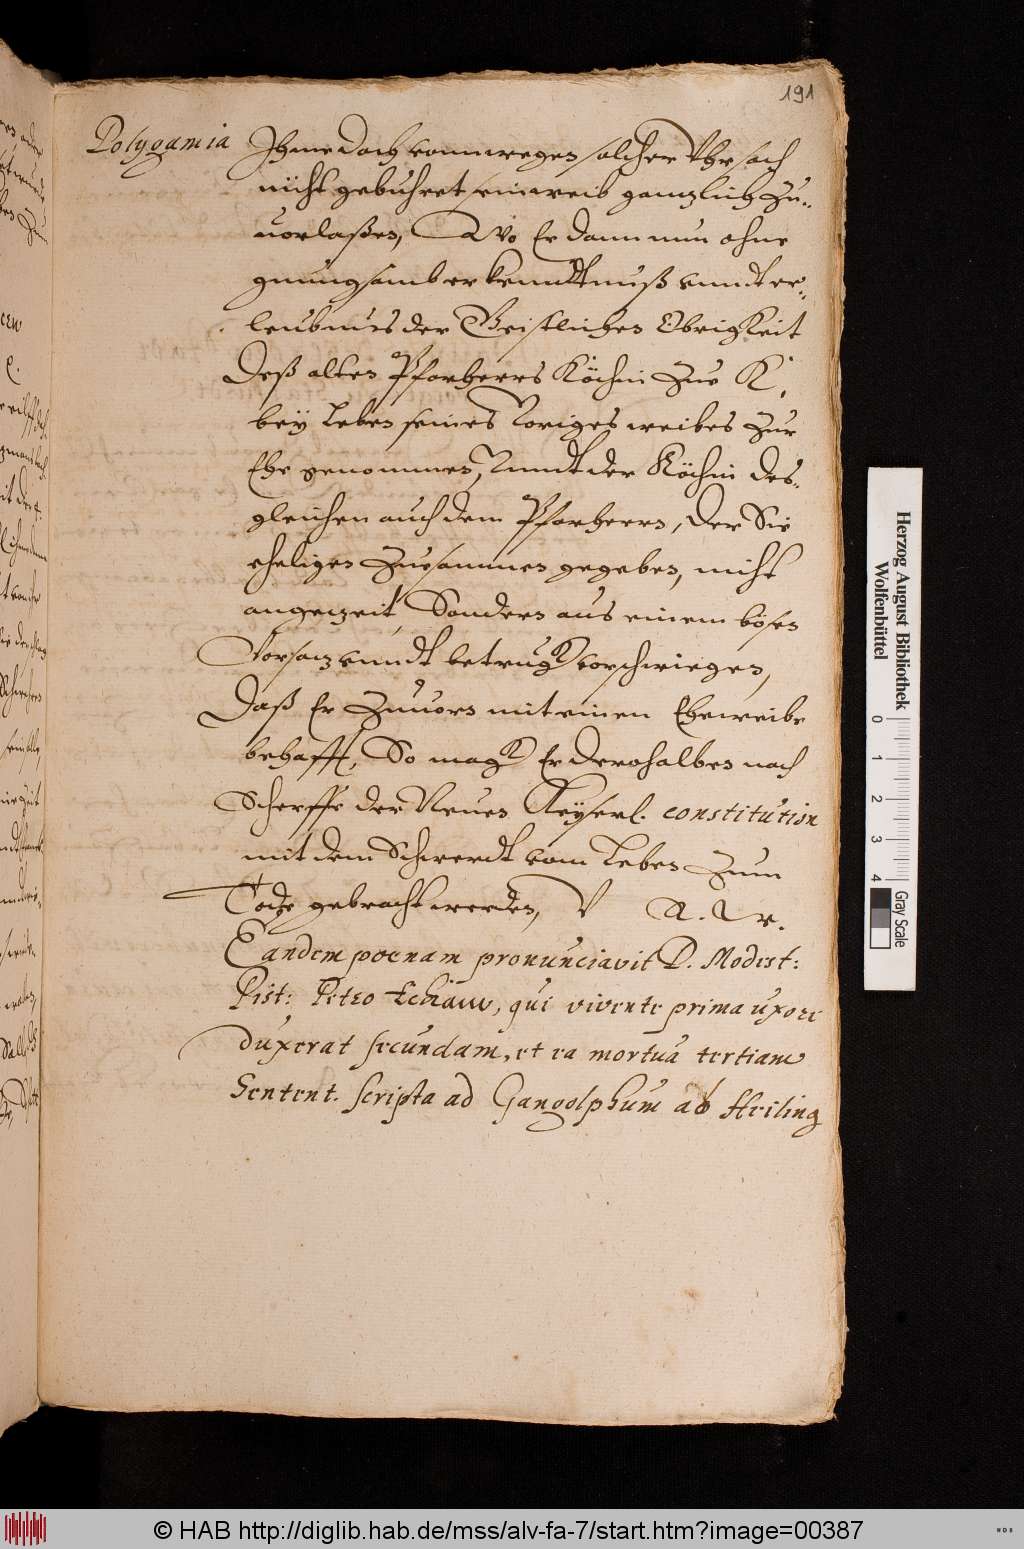 191
Polygamia
Ihme doch vonnwegen solcher Vhrsach
nicht gebuhret sein weib gantzlich zu-
uorlaßen, Wo Er dann nun ohne
gnungsamb erkenndttnuß vnndt er-
leubnus der Geistlichen Obrigkeit
Deß alten Pfarherrs Köchin zue K.
bey Leben seines Voriges weibes zur
Ehe genommen, Vnndt der Köchin des-
gleichen auch dem Pfarherrn, Der Sie
eheligen zuesammen gegeben, nicht
angezeit, Sondern aus einem bösen
Vorsatz vnndt betrugk vorschwiegen,
Daß Er zuuorn mit einen Eheweibe
behafft, So magk Er derohalben nach
Scherffe der Neuen Keyserl. constitution
mit dem Schwerdt vom Leben zum
Tode gebracht werden, V R. W.
Eandem poenam pronunciavit D. Modest:
Pist: Petro Echauw, qui vivente prima uxore
duxerat secundam, et ea mortua tertiam
Sentent. scripta ad Gangolphum ab Heiling
Herzog August Bibliothek
Wolfenbüttel
0 1 2 3 4
Gray Scale
© HAB http://diglib.hab.de/mss/alv-fa-7/start.htm?image=00387